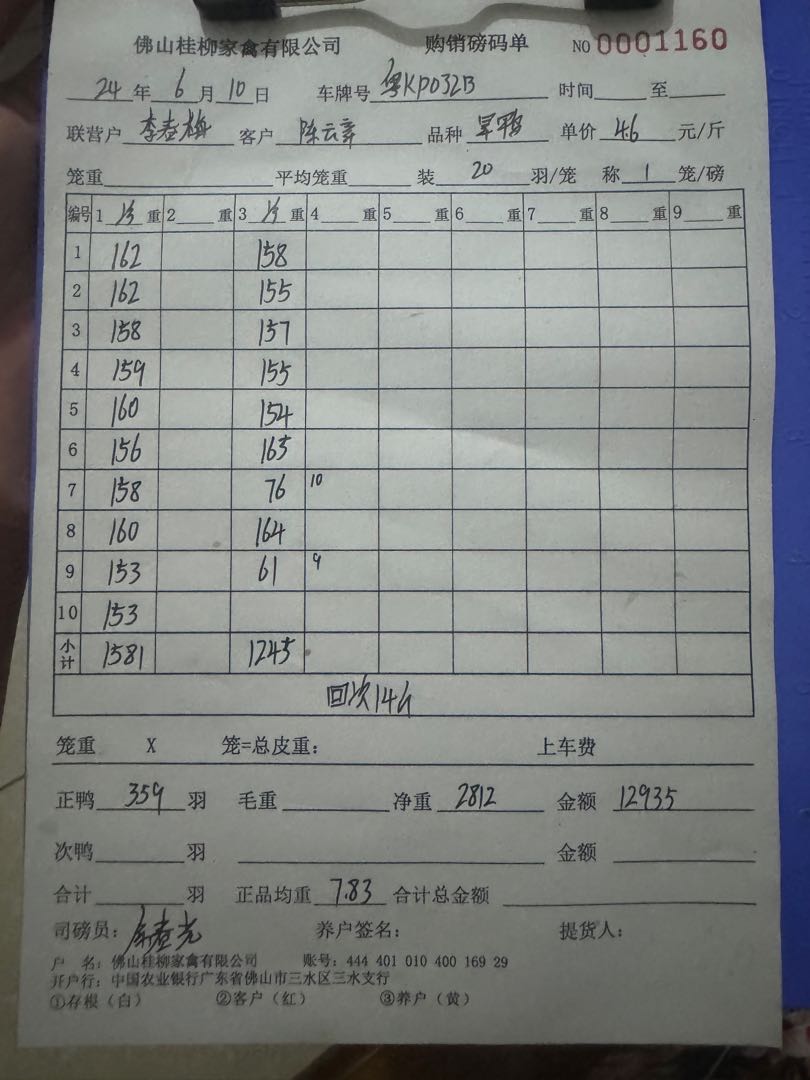 佛山桂柳家禽有限公司 购销磅码单 NO 0001160
24年6月10日 车牌号 粤KP032B 时间 至
联营户 李春梅 客户 陈云 品种 旱鸭 单价 4.6 元/斤
笼重 平均笼重 装 20 羽/笼 称 1 笼/磅
编号 1 净 重 2 重 3 净 重 4 重 5 重 6 重 7 重 8 重 9 重
1 162 158
2 162 155
3 158 157
4 159 155
5 160 154
6 156 165
7 158 76 10
8 160 164
9 153 61 9
10 153
小计 1581 1245
回次14斤
笼重 X 笼=总皮重： 上车费
正鸭 359 羽 毛重 净重 2812 金额 12935
次鸭 羽 金额
合计 羽 正品均重 7.83 合计总金额
司磅员： 养户签名： 提货人：
户 名：佛山桂柳家禽有限公司 账号：444 401 010 400 169 29
开户行：中国农业银行广东省佛山市三水区三水支行
①存根（白） ②客户（红） ③养户（黄）